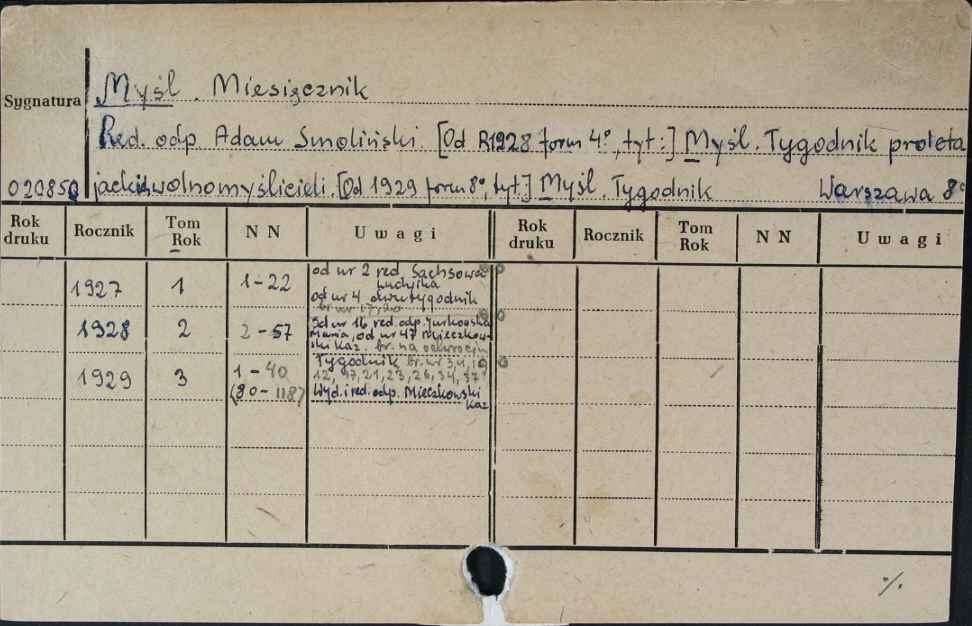 Sygnatura
Myśl. Miesięcznik
Red. odp. Adam Smoliński. [Od R1928 form 4°, tyt:] Myśl. Tygodnik proleta
020850
jackich wolnomyślicieli. [Od 1929 form 8°, tyt.] Myśl. Tygodnik Warszawa 8°
Rok druku Rocznik Tom Rok N N Uwagi Rok druku Rocznik Tom Rok N N Uwagi
1927 1 1-22 od nr 2 red. Sachsowa
Ludwika
od nr 4 dwutygodnik
br. nr
1928 2 2-57 Od nr 16 red. odp. Jurkowska
Maria, od nr 47 Mieczkow
ski Kaz. br. na odwrociu
1929 3 1-40 Tygodnik br. nr 3,4,
(80-118) 12, 21, 23, 26, 34, 37
Wyd. i red. odp. Mieczkowski
Kaz
%